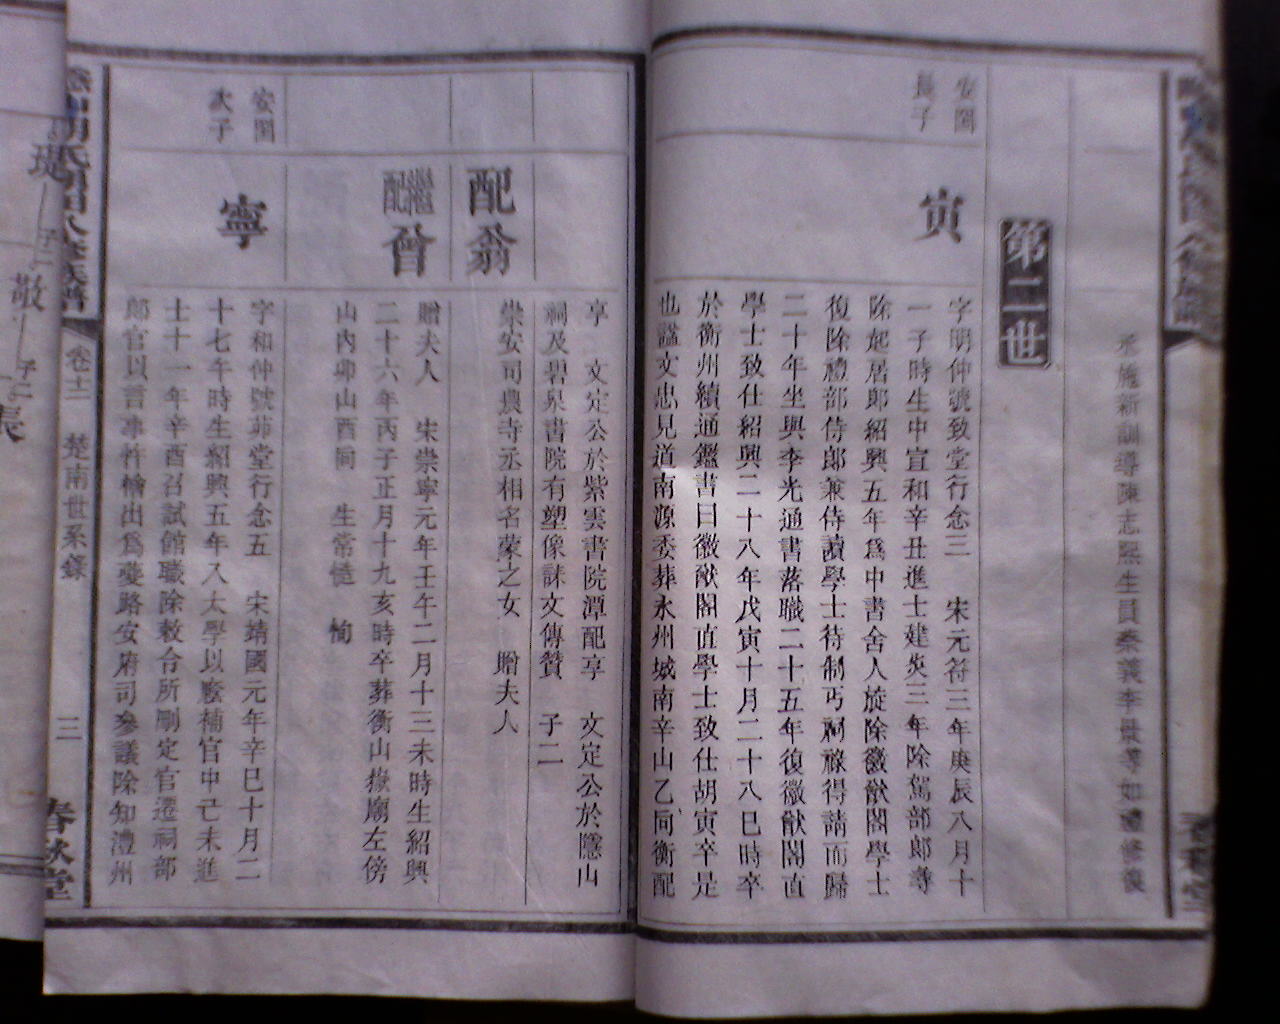 丞施新訓導陳志熙生員秦義李景等如禮修復
第二世
安國
長子
寅
字明仲號致堂行念三　宋元符三年庚辰八月十
一子時生中宣和辛丑進士建炎三年除駕部郎尋
除起居郎紹興五年為中書舍人旋除徽猷閣學士
復除禮部侍郎兼侍讀學士待制丐祠祿得請而歸
二十年坐與李光通書落職二十五年復徽猷閣直
學士致仕紹興二十八年戊寅十月二十八巳時卒
於衡州續通鑑書曰徽猷閣直學士致仕胡寅卒是
也諡文忠見道南源委葬永州城南辛山乙向衡配
享　文定公於紫雲書院潭配享　文定公於隱山
祠及碧泉書院有塑像誄文傳贊　子二
配翁
崇安司農寺丞相名蒙之女　贈夫人
繼配曾
贈夫人　宋崇寧元年壬午二月十三未時生紹興
二十六年丙子正月十九亥時卒葬衡山嶽廟左傍
山內卯山酉向　生常　恂
安國
次子
寧
字和仲號茆堂行念五　宋靖國元年辛巳十月二
十七午時生紹興五年入太學以廕補官中己未進
士十一年辛酉召試館職除敕令所刪定官遷祠部
郎官以言事忤檜出為夔路安府司參議除知澧州
卷十二　楚南世系錄
三
春秋堂